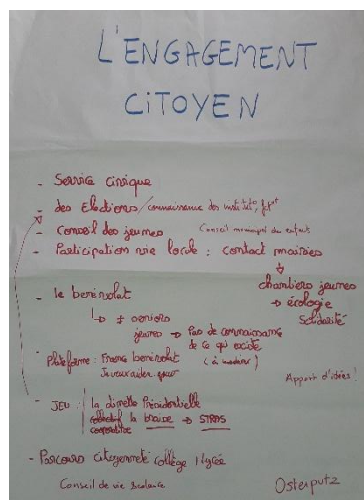 L'ENGAGEMENT
CITOYEN
- Service civique
- des Elections / connaissance des institut°, fct°
- Conseil des jeunes Conseil municipal des enfants
- Participation vie locale : contact mairies
↓
chantiers jeunes
→ écologie
Solidarité
- le bénévolat
↳ + seniors
jeunes → Pas de connaissance
de ce qui existe
Plateforme : France bénévolat (à moderer)
Jeveuxaider.gouv
Apport d'idées !
- JEU : la dinette Présidentielle
collectif la braise → STRAS
coopérative
- Parcours citoyenneté collège / lycée
Conseil de vie Scolaire
Osterputz